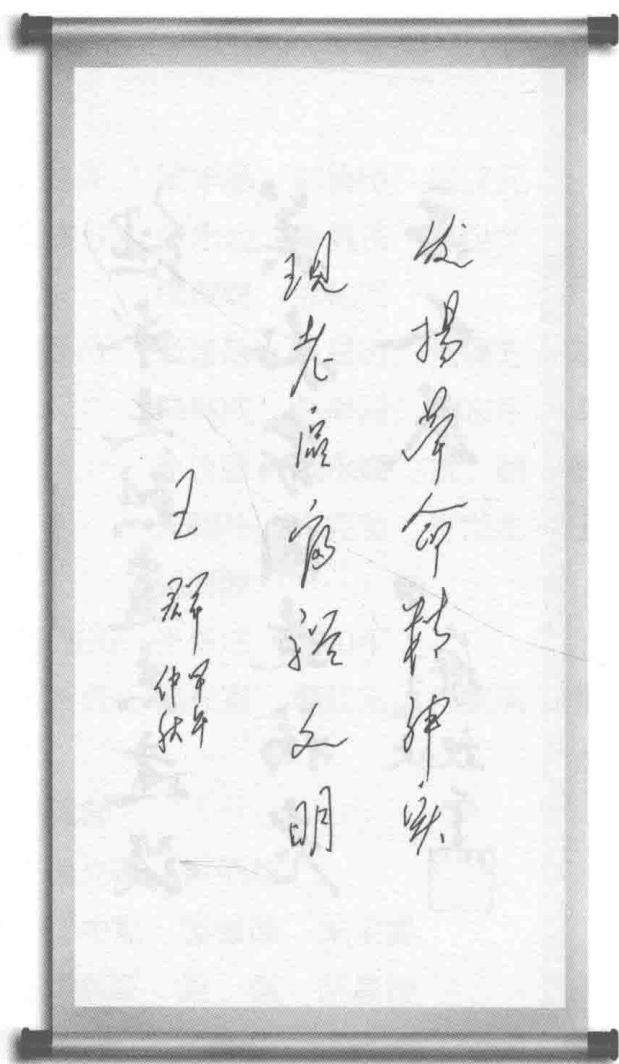 发扬革命精神实
现老區富裕文明
王群 甲午
仲秋